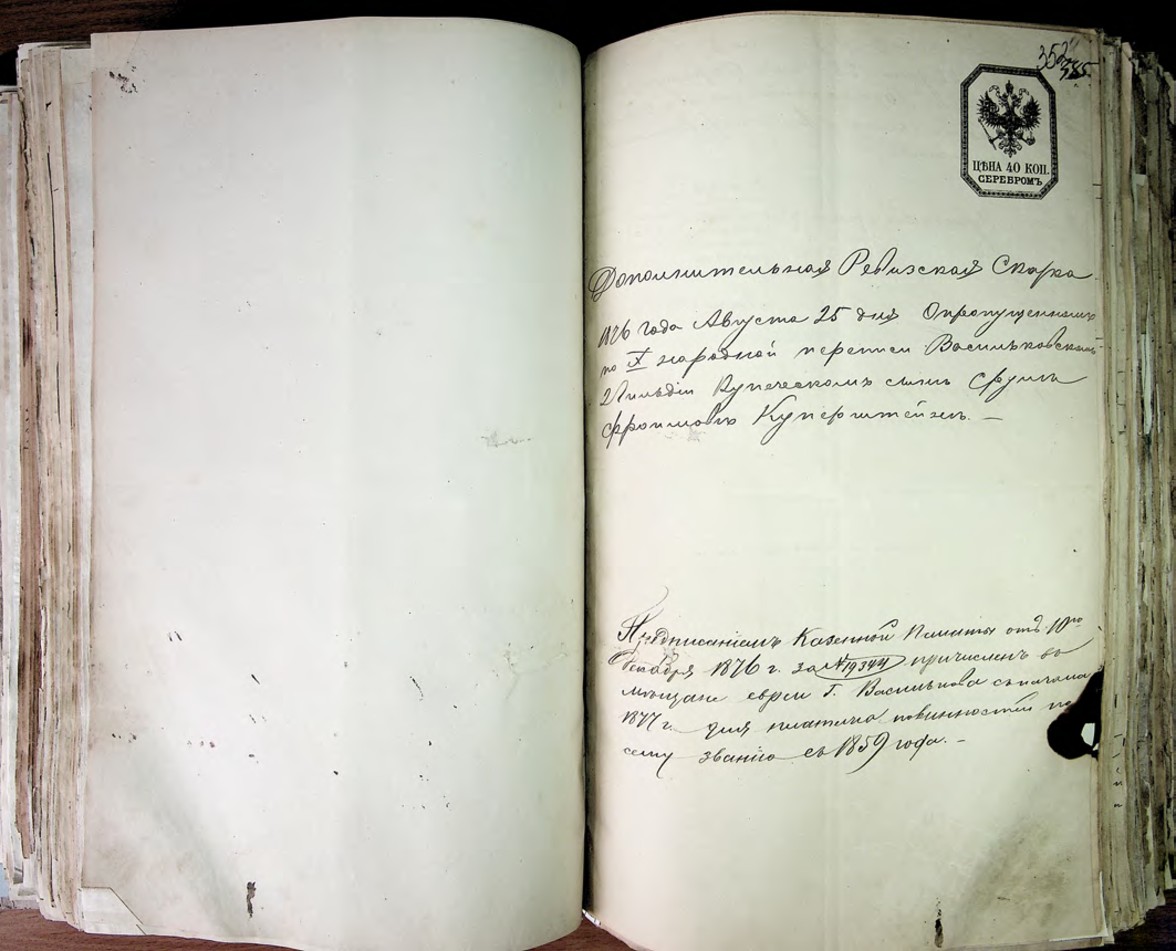 352
385.
ЦѢНА 40 КОП.
СЕРЕБРОМЪ
Дополнительная Ревизская Скаска
1876 года Августа 25 дня О пропущенномъ
по X народной переписи Васильковскомъ
2 Гильдіи Купеческомъ сынѣ Сруль
Фроимовѣ Куперштейнѣ. —
Предписаніемъ Казенной Палаты отъ 10го
Декабря 1876 г. за № 19344 причисленъ въ
мѣщане евреи г. Василькова съ начала
1877 г. для платежа повинностей по
сему званію съ 1859 года. —